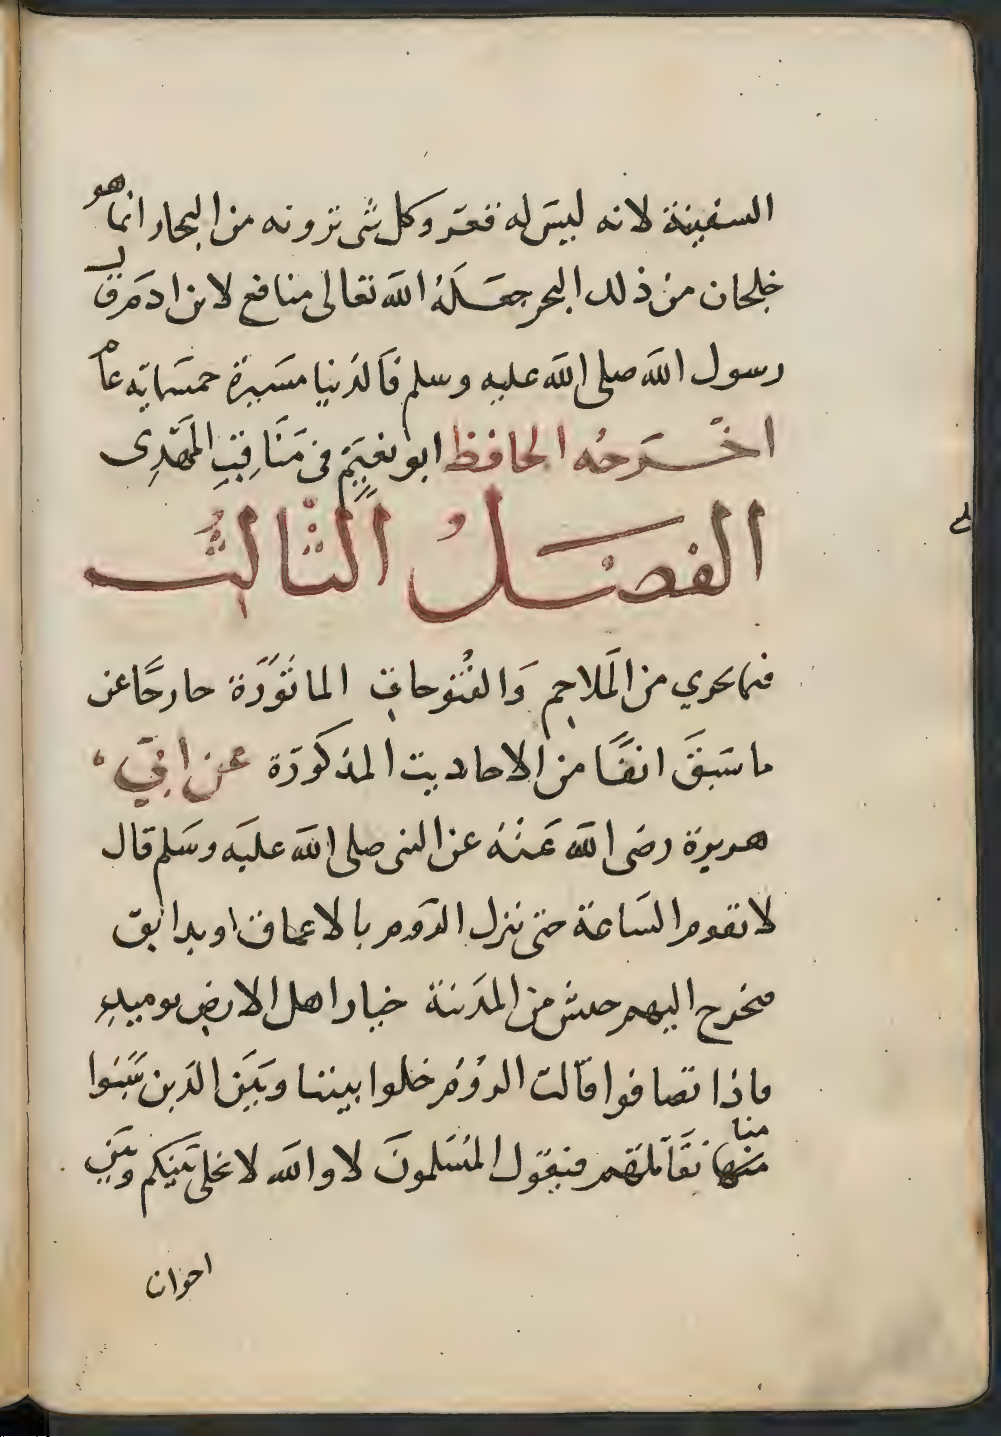 السفينة لانه ليس له قعر وكل شى ترونه من البحار انما هو
خلجان من ذلك البحر جعله الله تعالى منافع لابن ادم قال
رسول الله صلى الله عليه وسلم فالدنيا مسيرة خمسماية عام
اخرجه الحافظ ابو نعيم فى مناقب المهدى
الفصل الثالث
فيما يجري من الملاحم والفتوحات الماثورة خارجا عن
ما سبق انفا من الاحاديث المذكورة عن ابي
هريرة رضى الله عنه عن النبى صلى الله عليه وسلم قال
لا تقوم الساعة حتى تنزل الروم بالاعماق او بدابق
فيخرج اليهم جيش من المدينة خيار اهل الارض يوميذ
فاذا تصافوا قالت الروم خلوا بيننا وبين الذين سبوا
منا نقاتلهم فيقول المسلمون لا والله لا نخلى بينكم وبين
اخوان